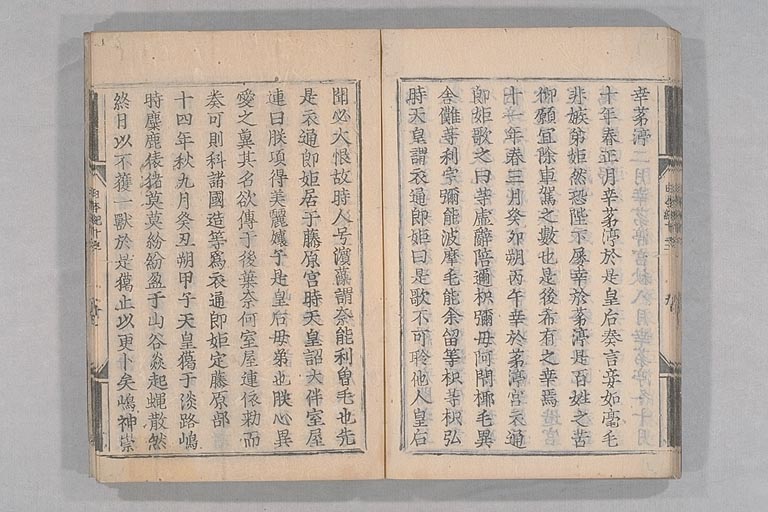 幸茅渟二月幸茅渟宮秋八月幸茅渟冬十月
十年春正月幸茅渟於是皇后奏言妾如毫毛
非嫉弟姫然恐陛下屢幸於茅渟是百姓之苦
仰願宜除車駕之數也是後希有之幸焉
十一年春三月癸卯朔丙午幸於茅渟宮衣通
郎姫歌之曰等虛辭陪邇枳彌母阿閇椰毛異
舎儺等利宇彌能波摩毛能余留等枳等枳弘
時天皇謂衣通郎姫曰是歌不可聆他人皇后
聞必大恨故時人号濱藻謂奈能利曽毛也先
是衣通郎姫居于藤原宮時天皇詔大伴室屋
連曰朕項得美麗嬢子是皇后母弟也朕心異
愛之冀其名欲傳于後葉奈何室屋連依勅而
奏可則科諸國造等為衣通郎姫定藤原部
十四年秋九月癸丑朔甲子天皇獦于淡路嶋
時麋鹿猨猪莫莫紛紛盈于山谷焱起蝿散然
終日以不獲一獸於是獦止以更卜矣嶋神祟